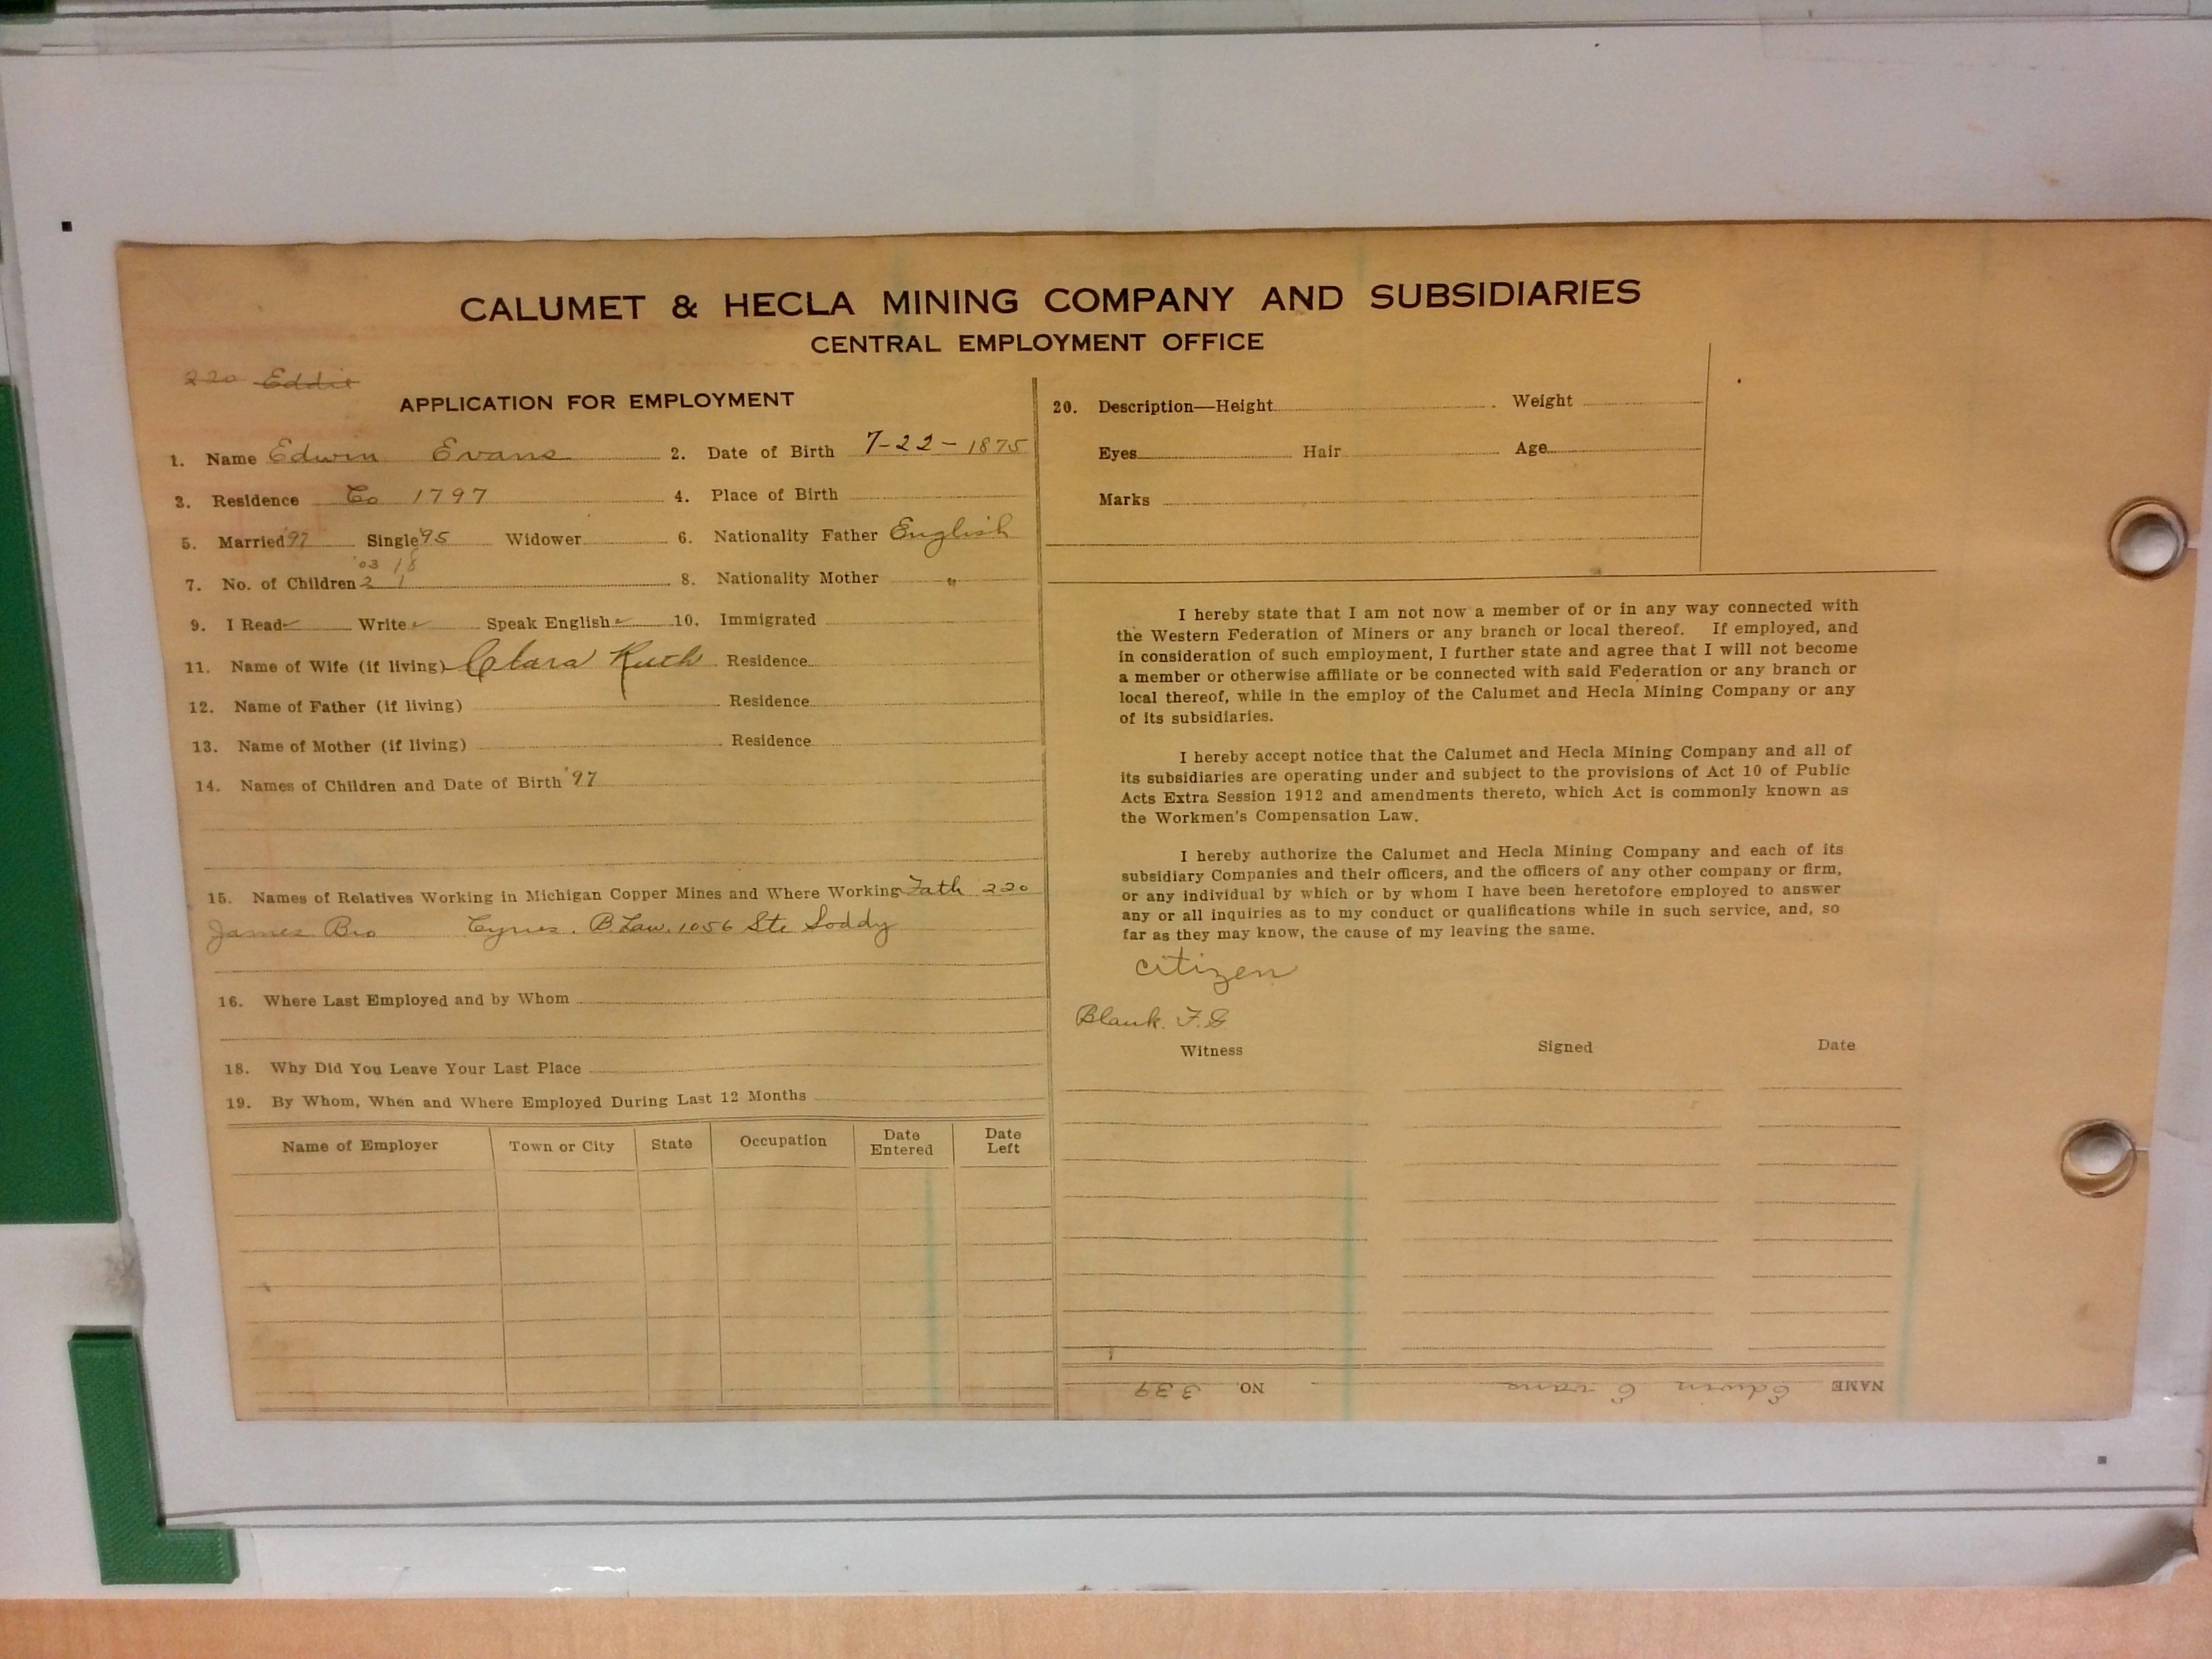 CALUMET & HECLA MINING COMPANY AND SUBSIDIARIES
CENTRAL EMPLOYMENT OFFICE
220 Eddie
APPLICATION FOR EMPLOYMENT
1. Name Edwin Evans 2. Date of Birth 7-22-1875
3. Residence Co 1797 4. Place of Birth
5. Married '97 Single '95 Widower 6. Nationality Father English
'03 18
7. No. of Children 2 1 8. Nationality Mother "
9. I Read ✓ Write ✓ Speak English ✓ 10. Immigrated
11. Name of Wife (if living) Clara Ruth Residence
12. Name of Father (if living) Residence
13. Name of Mother (if living) Residence
14. Names of Children and Date of Birth '97
15. Names of Relatives Working in Michigan Copper Mines and Where Working Fath 220
James Bro Cyrus. B. Law. 1056 Ste Soddy
16. Where Last Employed and by Whom
18. Why Did You Leave Your Last Place
19. By Whom, When and Where Employed During Last 12 Months
Name of Employer Town or City State Occupation Date Entered Date Left
20. Description—Height Weight
Eyes Hair Age
Marks
I hereby state that I am not now a member of or in any way connected with
the Western Federation of Miners or any branch or local thereof. If employed, and
in consideration of such employment, I further state and agree that I will not become
a member or otherwise affiliate or be connected with said Federation or any branch or
local thereof, while in the employ of the Calumet and Hecla Mining Company or any
of its subsidiaries.
I hereby accept notice that the Calumet and Hecla Mining Company and all of
its subsidiaries are operating under and subject to the provisions of Act 10 of Public
Acts Extra Session 1912 and amendments thereto, which Act is commonly known as
the Workmen's Compensation Law.
I hereby authorize the Calumet and Hecla Mining Company and each of its
subsidiary Companies and their officers, and the officers of any other company or firm,
or any individual by which or by whom I have been heretofore employed to answer
any or all inquiries as to my conduct or qualifications while in such service, and, so
far as they may know, the cause of my leaving the same.
citizen
Blank. F.G
Witness Signed Date
NAME Edwin Evans NO. 339